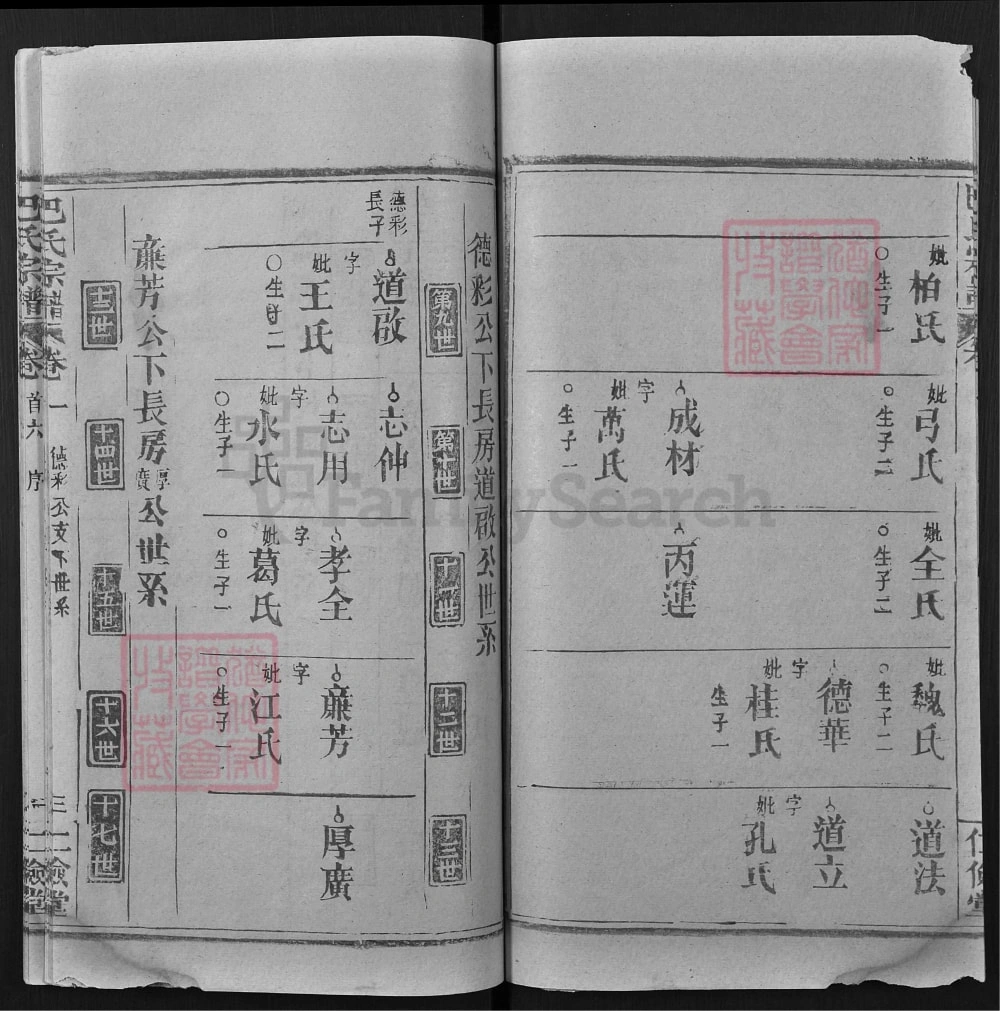 妣柏氏
○生子一
妣弓氏
○生子二
成材
字
妣萬氏
○生子一
妣全氏
○生子二
丙蓮
妣魏氏
○生子二
德華
字
妣桂氏
生子一
道法
道立
字
妣孔氏
德彩公下長房道啟公世系
第九世
十二世
十三世
德彩長子
道啟
字
妣王氏
○生子二
志仲
志用
字
妣水氏
○生子一
孝全
字
妣葛氏
○生子一
蘼芳
字
妣江氏
○生子一
厚廣
蘼芳公下長房厚廣公世系
十四世
十五世
十六世
十七世
巴氏宗譜
卷一
德彩公支下世系
三
巴氏宗譜
卷
首六
序
FamilySearch